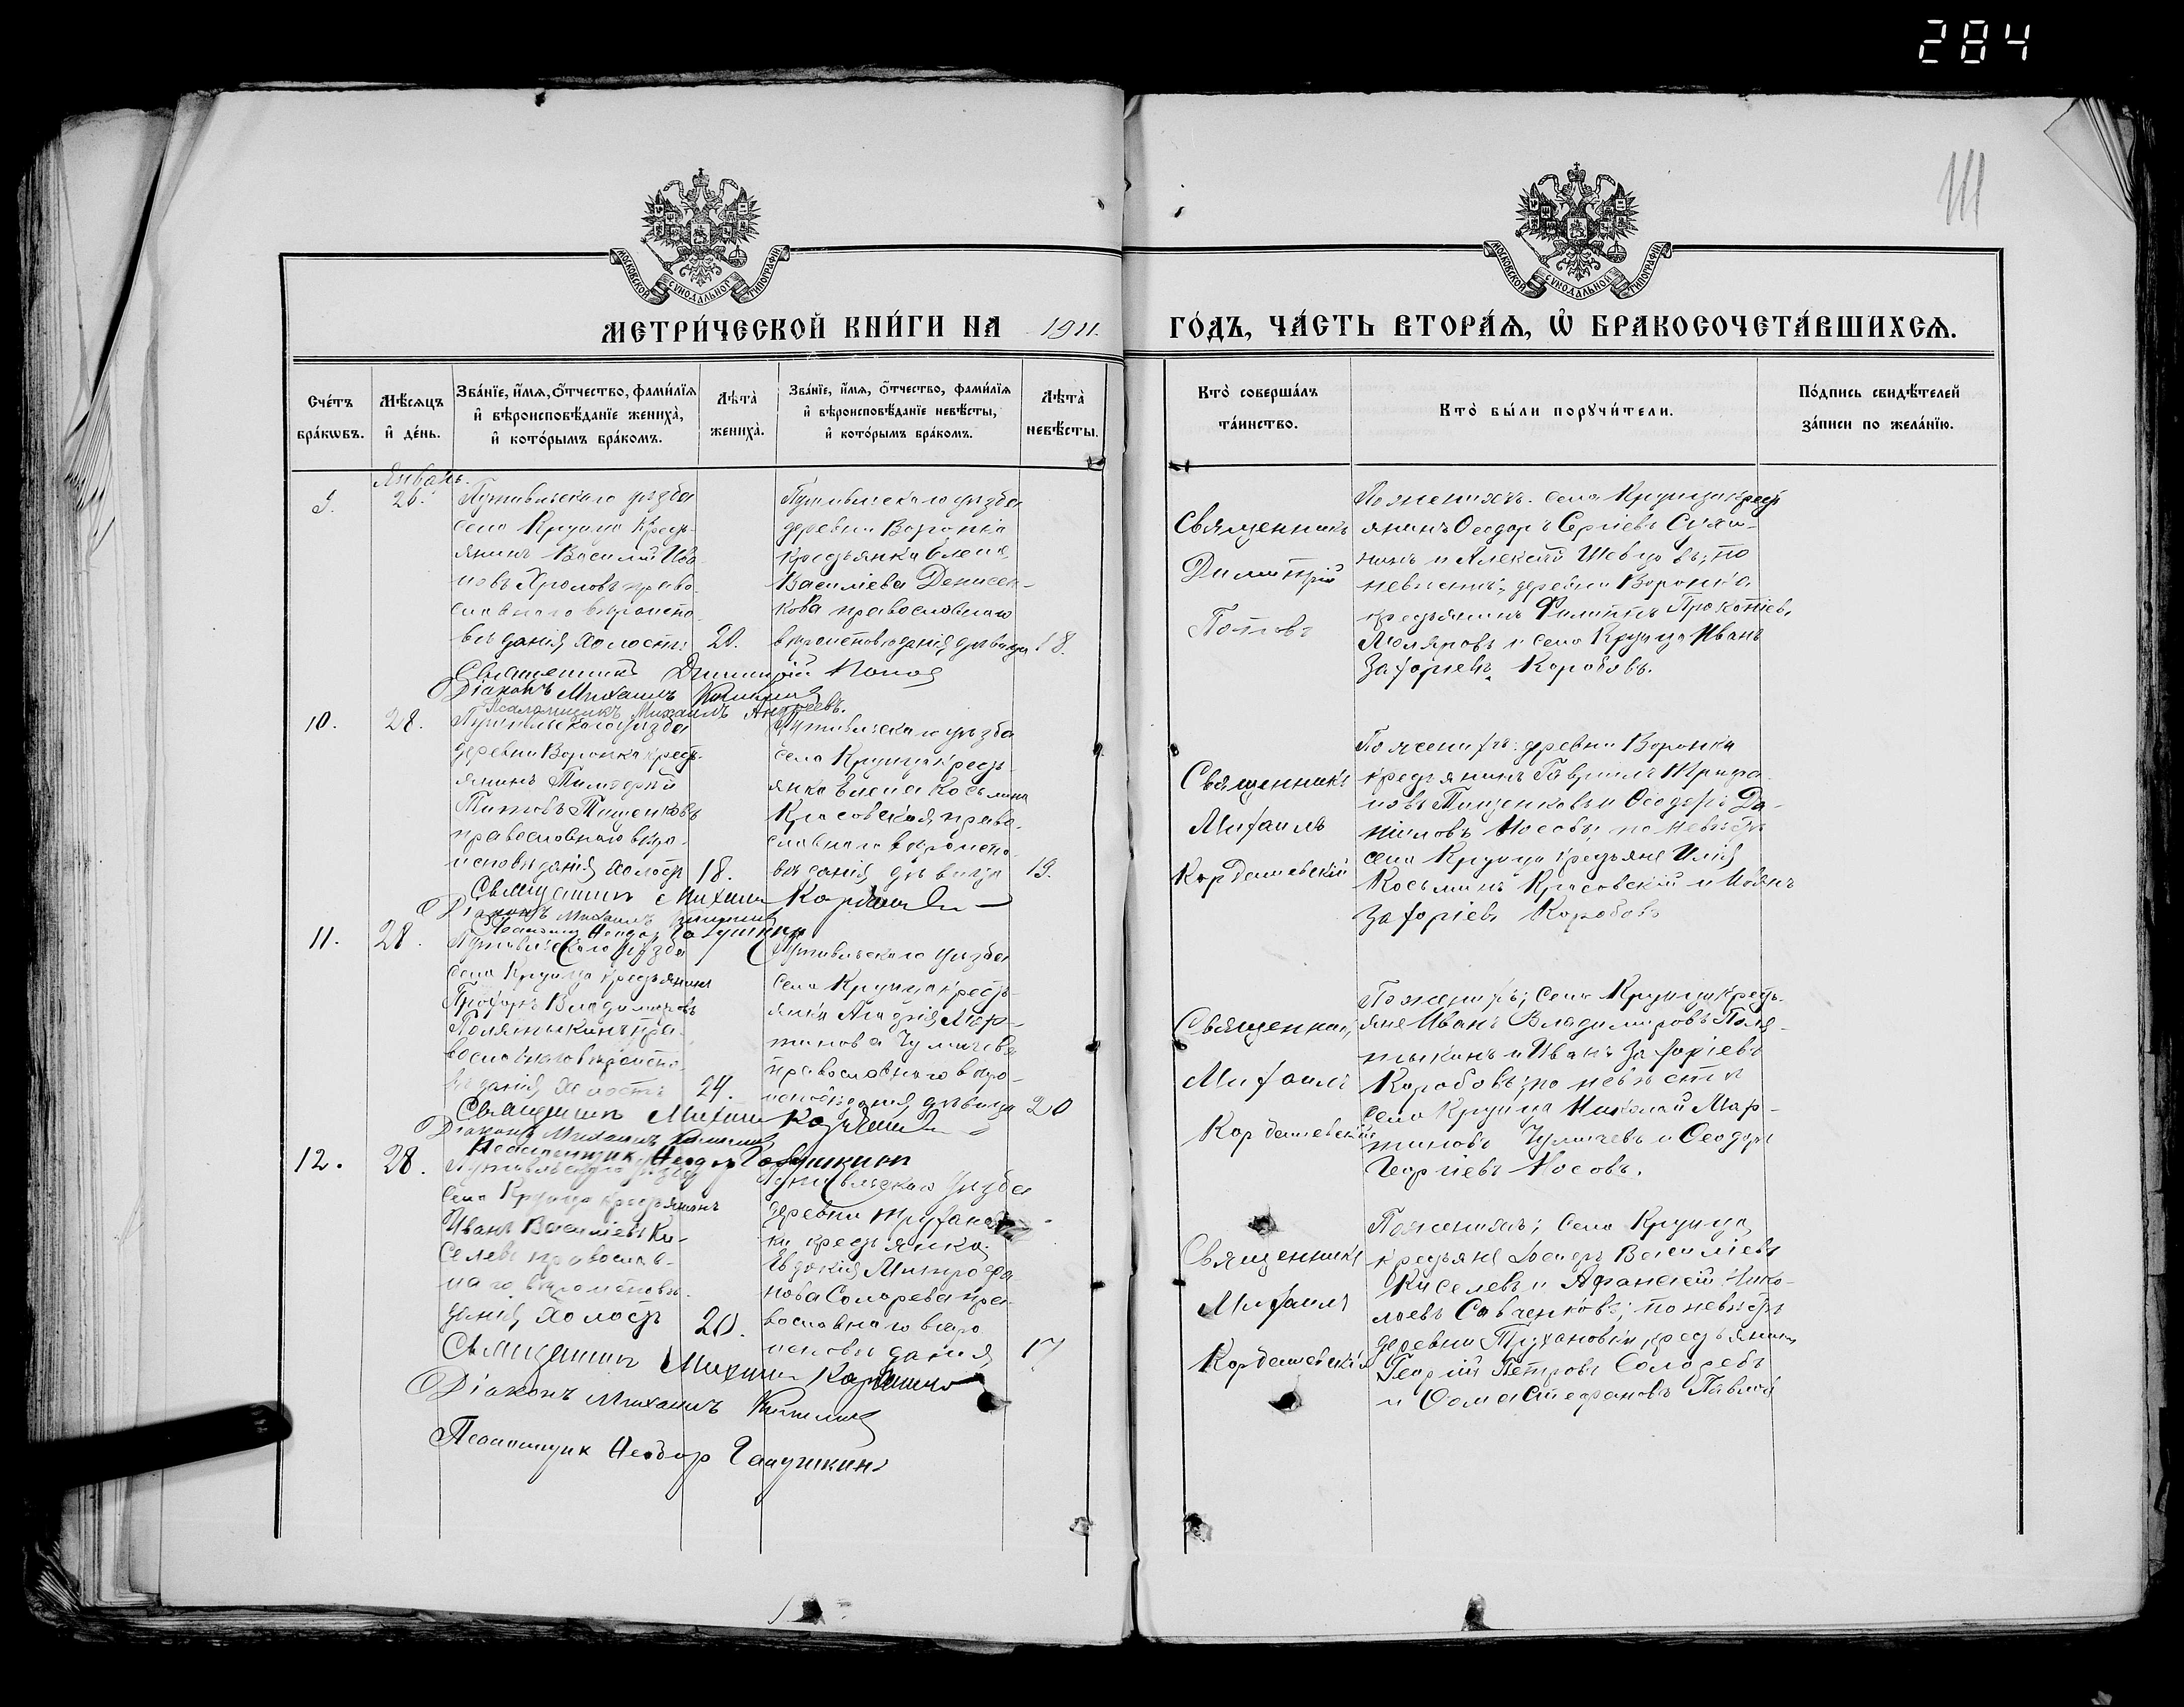 284
111
МОСКОВСКОЙ СУНОДАЛЬНОЙ ТИПОГРАФІИ
МОСКОВСКОЙ СУНОДАЛЬНОЙ ТИПОГРАФІИ
МЕТРИ́ЧЕСКОЙ КНИ́ГИ НА 1911. ГО́ДЪ, ЧА́СТЬ ВТОРА́Я, Ѡ҆ БРАКОСОЧЕТА́ВШИХСЯ.
Сче́тъ бра́кωвъ.
Мѣ́сяцъ и҆ де́нь.
Зва́нїе, и҆́мя, ѻ҆́тчество, фами́лїя и҆ вѣроисповѣ́данїе жениха̀, и҆ кото́рымъ бра́комъ.
Лѣта̀ жениха̀.
Зва́нїе, и҆́мя, ѻ҆́тчество, фами́лїя и҆ вѣроисповѣ́данїе невѣ́сты, и҆ кото́рымъ бра́комъ.
Лѣта̀ невѣ́сты.
Кто̀ соверша́лъ та́инство.
Кто̀ бы́ли порꙋчи́тели.
По́дпись свидѣ́телей за́писи по жела́нїю.
Январь.
9.
26.
Путивльскаго уѣзда
села Крупца кресть-
янинъ Василій Ива-
новъ Фроловъ право-
славнаго вѣроиспо-
вѣданія, холостъ
20.
Путивльскаго уѣзда
деревни Воронка
крестьянка Елена
Василіева Денисен-
кова православнаго
вѣроисповѣданія, дѣвица
18.
Священникъ
Димитрій
Поповъ
По женихѣ: села Крупца крест
янинъ Ѳеодоръ Сергіевъ
и Алексій Шевцовъ; по
невѣстѣ: деревни Воронка
крестьянинъ Филиппъ Прокопіевъ
Столяровъ и села Крупца Иванъ
Захаріевъ Коробовъ.
Священникъ Димитрій Попов
Діаконъ Михаилъ
Псаломщикъ Михаилъ Андреевъ.
10.
28.
Путивльскаго уѣзда
деревни Воронка крест-
янинъ Тимофей
Титовъ Тищенковъ
православнаго вѣро-
исповѣданія, холостъ
18.
Путивльскаго уѣзда
села Крупца кресть
янка Елена Косьмина
Красовская, право-
славнаго вѣроиспо-
вѣданія, дѣвица
19.
Священникъ
Михаилъ
Кордашевскій
По женихѣ: деревни Воронка
крестьянинъ Гавріилъ Трифо-
новъ Тищенковъ и Ѳеодоръ Да-
ниловъ Носовъ; по невѣстѣ
села Крупца крестьяне Илія
Косьминъ Красовскій и Иванъ
Захаріевъ Коробовъ
Священникъ Михаил
Діаконъ Михаилъ
Псаломщ Ѳеодор Галушкинъ
11.
28.
Путивльскаго уѣзда
села Крупца крестьянинъ
Прохоръ Владиміровъ
Полятыкинъ, пра-
вославнаго вѣроиспо-
вѣданія, холостъ
24.
Путивльскаго уѣзда
села Крупца кресть-
янка Мар-
тинова Чумичева
православнаго вѣро-
исповѣданія, дѣвица
20
Священникъ
Михаилъ
Кордашевскій
По женихѣ; села Крупца кресть-
яне Иванъ Владиміровъ Поля-
тыкинъ и Иванъ Захаріевъ
Коробовъ; по невѣстѣ
села Крупца Николай Мар-
тиновъ Чумичевъ и Ѳеодоръ
Георгіевъ Носовъ.
Священникъ Михаил
Діаконъ Михаилъ
Псаломщикъ Ѳеодор Галушкинъ
12.
28.
Путивльскаго уѣзда
села Крупца крестьянинъ
Иванъ Василіевъ Ки-
селевъ православ-
наго вѣроисповѣ-
данія, холостъ
20.
Путивльскаго уѣзда
деревни Труханов-
ки крестьянка
Евдокія Митрофа
нова Солодева пра-
вославнаго вѣро
исповѣданія
17
Священникъ
Михаилъ
Кордашевскій
По женихѣ; села Крупца,
крестьяне Василіевъ
Киселевъ и Афанасій Нико-
лаевъ Савченковъ; по невѣстѣ
деревни Трухановки, крестьянинъ
Георгій Петровъ
и Ѳома Стефановъ
Священникъ Михаил
Діаконъ Михаилъ
Псаломщик Ѳеодор Галушкинъ